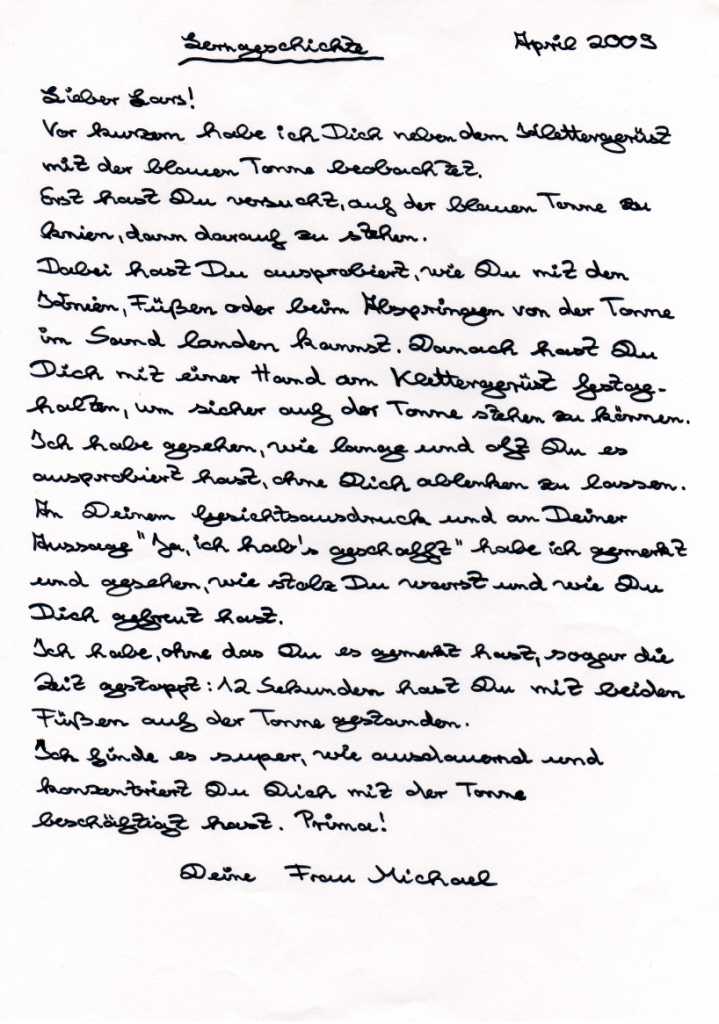 Lerngeschichte April 2009
Lieber Lars!
Vor kurzem habe ich Dich neben dem Klettergerüst
mit der blauen Tonne beobachtet.
Erst hast Du versucht, auf der blauen Tonne zu
knien, dann darauf zu stehen.
Dabei hast Du ausprobiert, wie Du mit den
Knien, Füßen oder beim Abspringen von der Tonne
im Sand landen kannst. Danach hast Du
Dich mit einer Hand am Klettergerüst festge-
halten, um sicher auf der Tonne stehen zu können.
Ich habe gesehen, wie lange und oft Du es
ausprobiert hast, ohne Dich ablenken zu lassen.
An Deinem Gesichtsausdruck und an Deiner
Aussage "Ja, ich hab's geschafft" habe ich gemerkt
und gesehen, wie stolz Du warst und wie Du
Dich gefreut hast.
Ich habe, ohne das Du es gemerkt hast, sogar die
Zeit gestoppt: 12 Sekunden hast Du mit beiden
Füßen auf der Tonne gestanden.
Ich finde es super, wie ausdauernd und
konzentriert Du Dich mit der Tonne
beschäftigt hast. Prima!
Deine Frau Michael